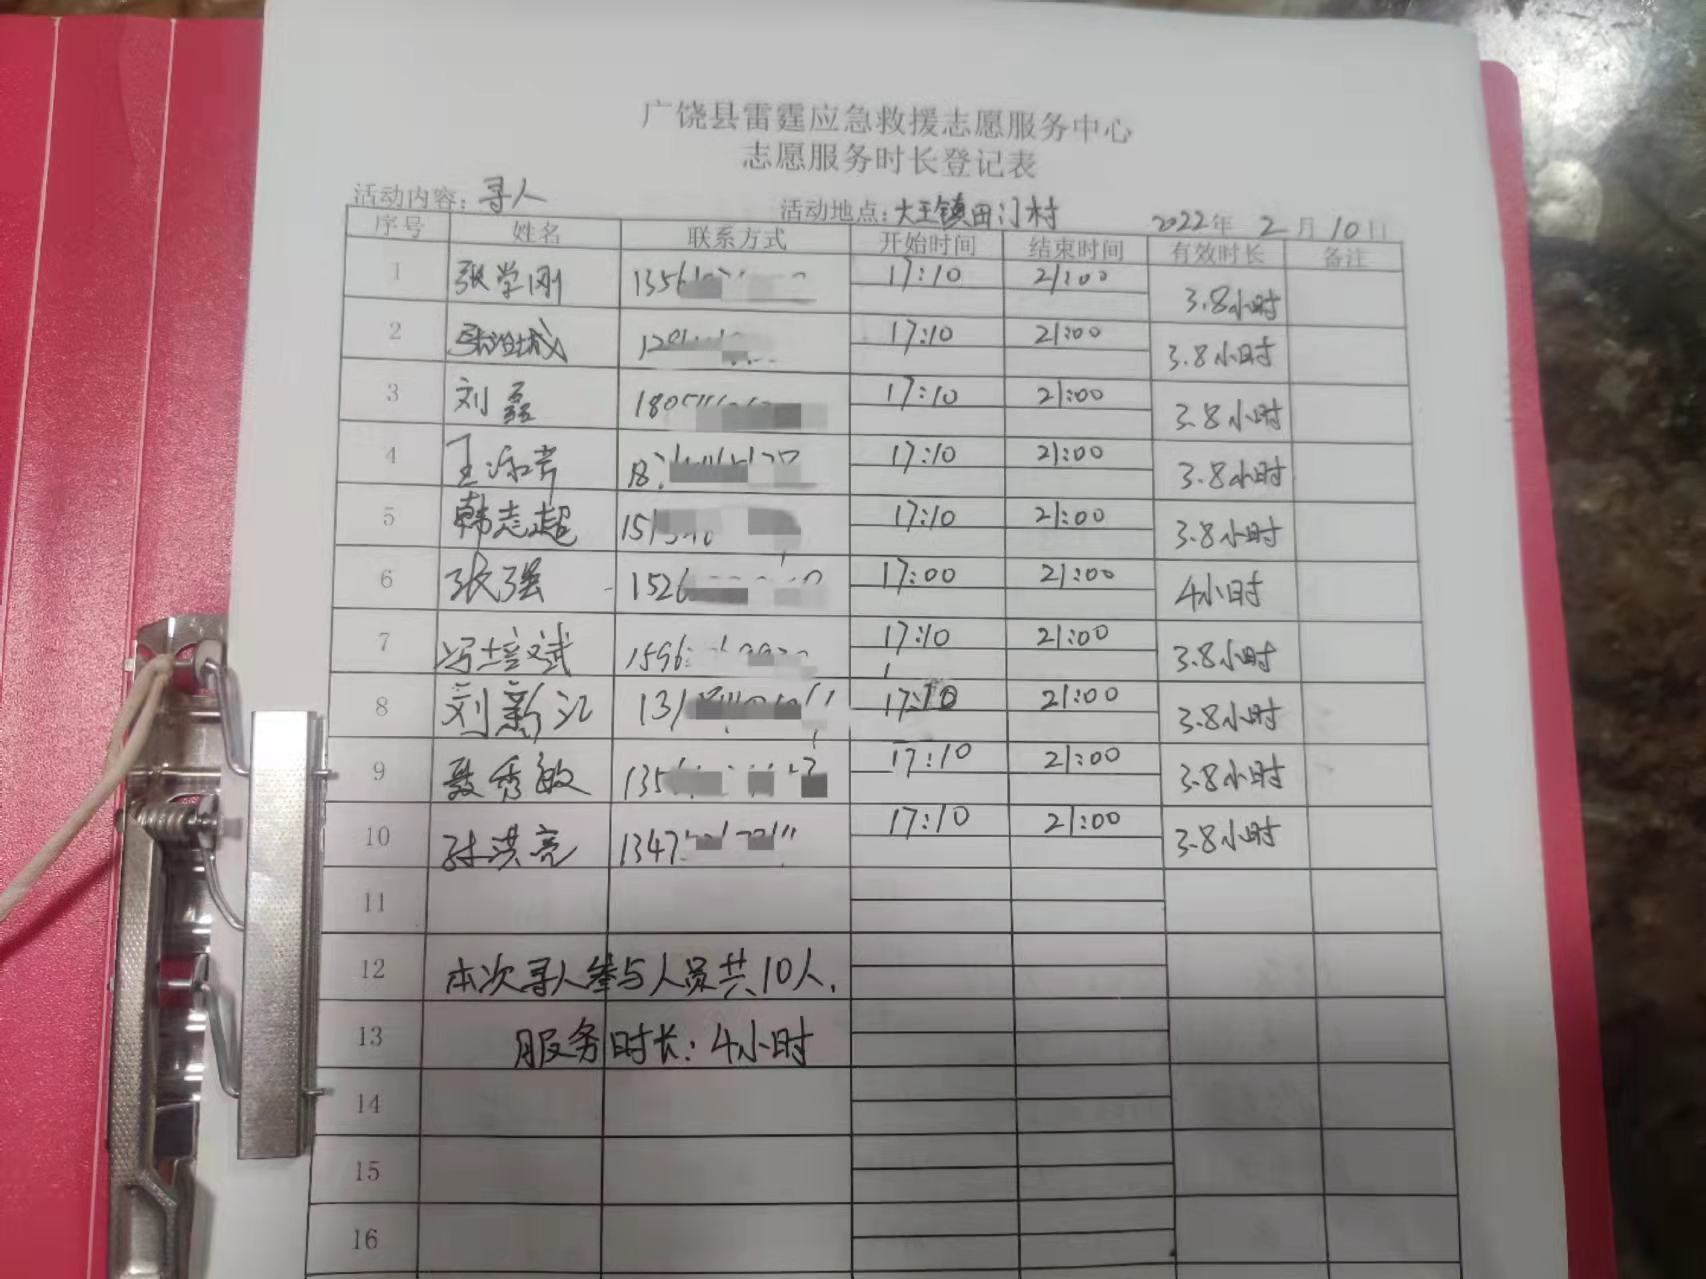 广饶县雷霆应急救援志愿服务中心
志愿服务时长登记表
活动内容：寻人 活动地点：大王镇田门村 2022年 2月10日
序号 姓名 联系方式 开始时间 结束时间 有效时长 备注
1 张学刚 1356 17:10 21:00 3.8小时
2 17:10 21:00 3.8小时
3 刘磊 180 17:10 21:00 3.8小时
4 王 17:10 21:00 3.8小时
5 韩志超 151 17:10 21:00 3.8小时
6 张强 1526 17:00 21:00 4小时
7 冯培斌 1596 17:10 21:00 3.8小时
8 刘新江 131 17:10 21:00 3.8小时
9 聂秀敏 135 17:10 21:00 3.8小时
10 孙洪亮 1347 17:10 21:00 3.8小时
11
12 本次寻人参与人员共10人，
13 服务时长：4小时
14
15
16